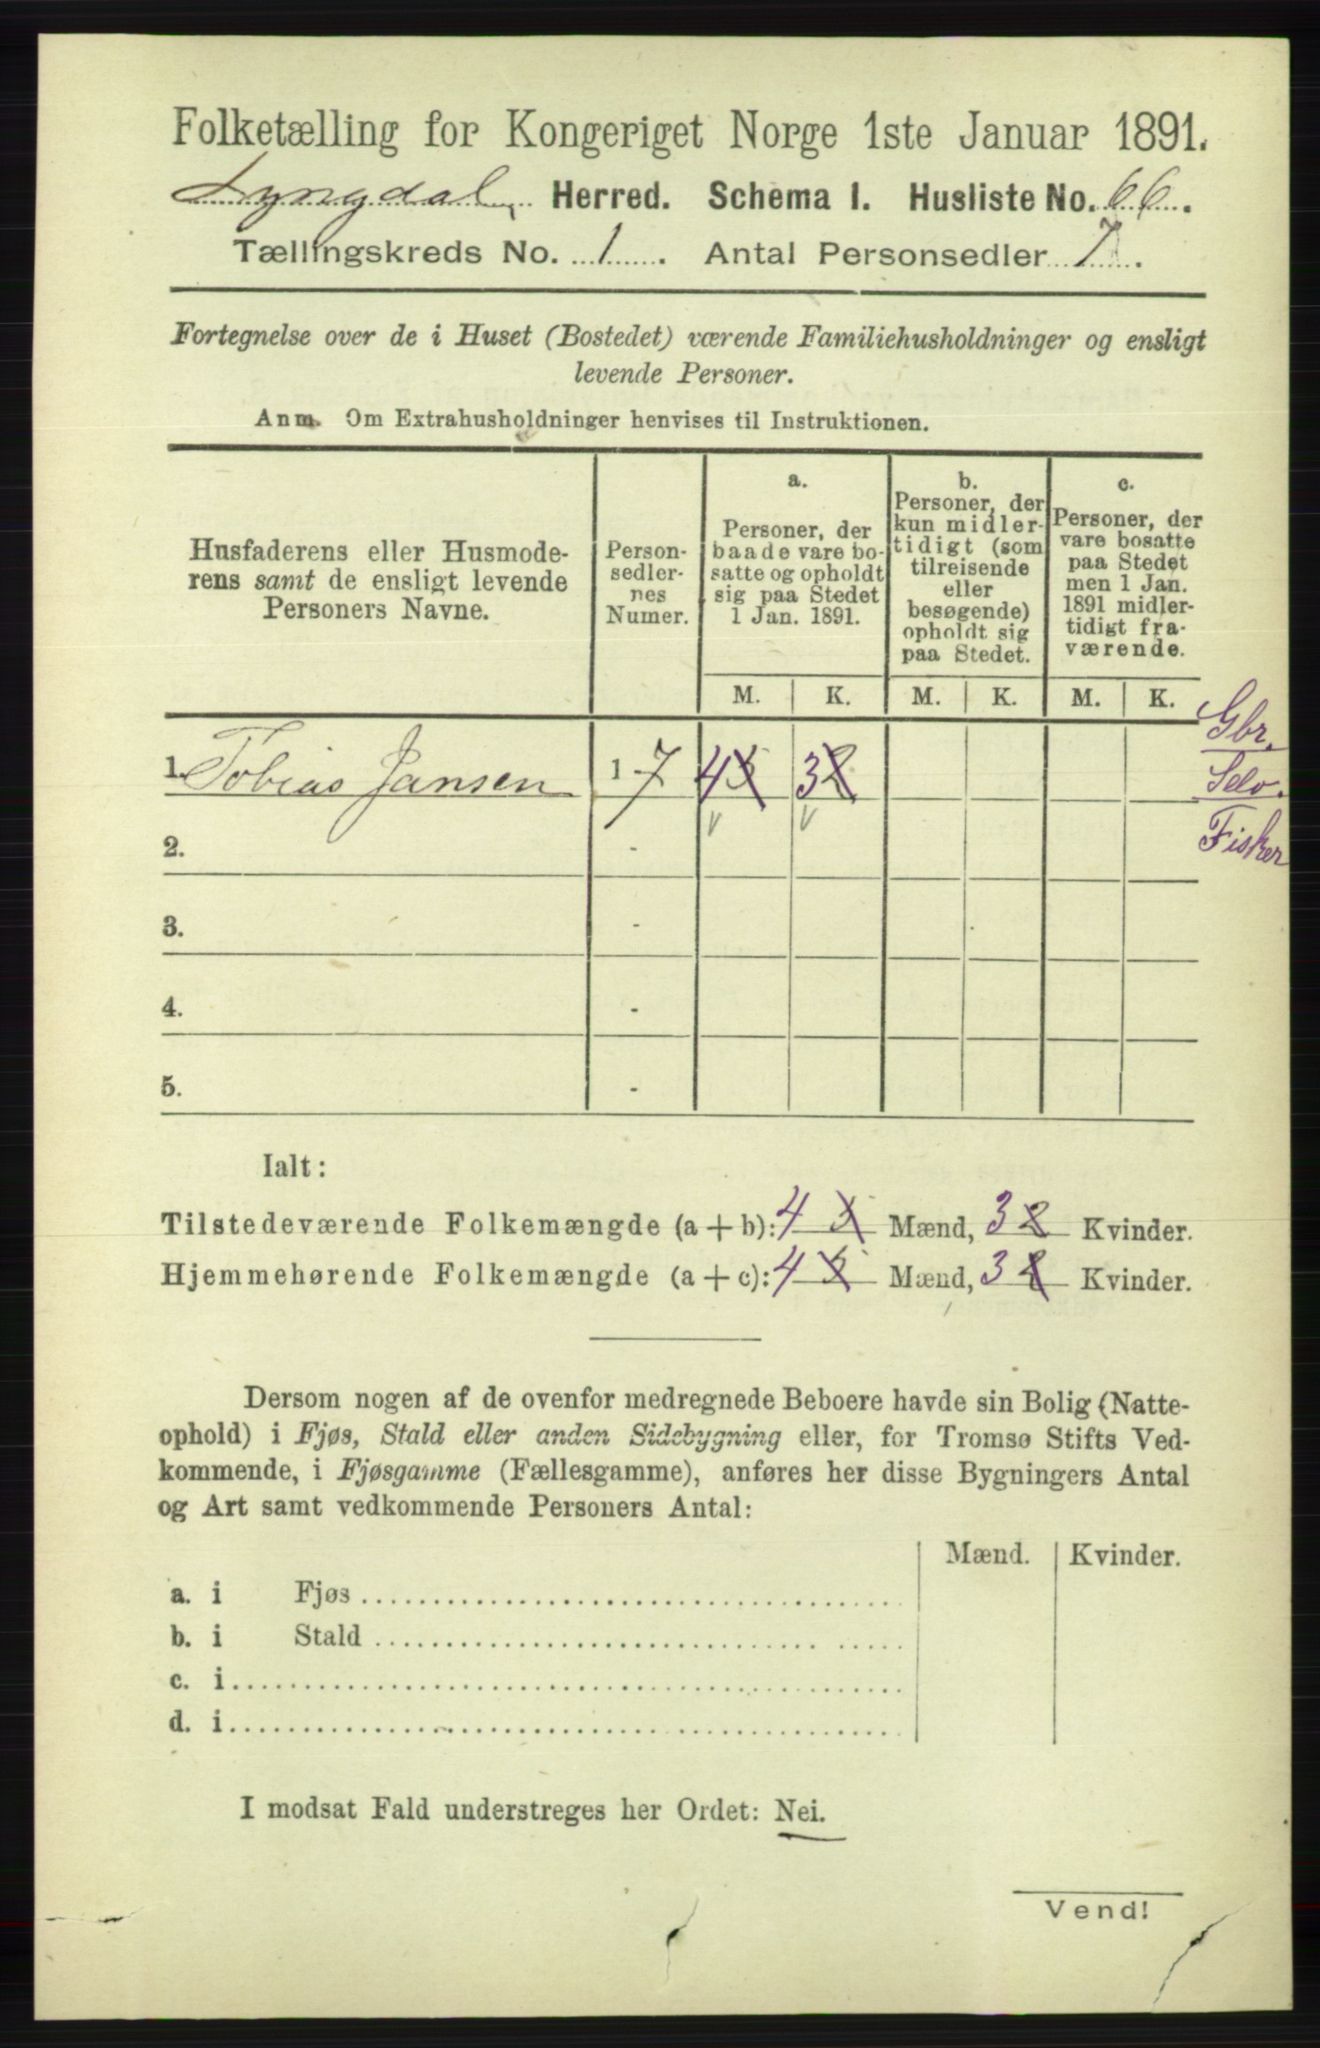 Folketælling for Kongeriget Norge 1ste Januar 1891.
Lyngdal Herred. Schema I. Husliste No. 66.
Tællingskreds No. 1. Antal Personsedler 7.
Fortegnelse over de i Huset (Bostedet) værende Familiehusholdninger og ensligt
levende Personer.
Anm. Om Extrahusholdninger henvises til Instruktionen.
Husfaderens eller Husmode-
rens samt de ensligt levende
Personers Navne.
Person-
sedler-
nes
Numer.
a.
Personer, der
baade vare bo-
satte og opholdt
sig paa Stedet
1 Jan. 1891.
b.
Personer, der
kun midler-
tidigt (som
tilreisende
eller
besøgende)
opholdt sig
paa Stedet.
c.
Personer, der
vare bosatte
paa Stedet
men 1 Jan.
1891 midler-
tidigt fra-
værende.
M. K. M. K. M. K.
1. Tobias Jansen 1-7 4 3 3 2
Gbr.
Selv.
Fisker
2. -
3. -
4. -
5. -
Ialt:
Tilstedeværende Folkemængde (a + b): 4 3 Mænd, 3 2 Kvinder.
Hjemmehørende Folkemængde (a + c): 4 3 Mænd, 3 2 Kvinder.
Dersom nogen af de ovenfor medregnede Beboere havde sin Bolig (Natte-
ophold) i Fjøs, Stald eller anden Sidebygning eller, for Tromsø Stifts Ved-
kommende, i Fjøsgamme (Fællesgamme), anføres her disse Bygningers Antal
og Art samt vedkommende Personers Antal:
Mænd. Kvinder.
a. i Fjøs
b. i Stald
c. i
d. i
I modsat Fald understreges her Ordet: Nei.
Vend!